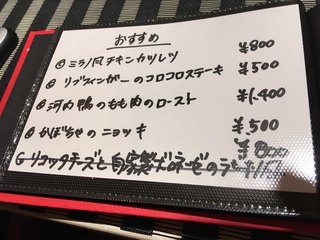 おすすめ
ミラノ風チキンカツレツ ¥800
リブフィンガーのコロコロステーキ ¥500
河内鴨のもも肉のロースト ¥1,400
かぼちゃのニョッキ ¥500
リコッタチーズと自家製ボロネーゼのラザニア ¥800